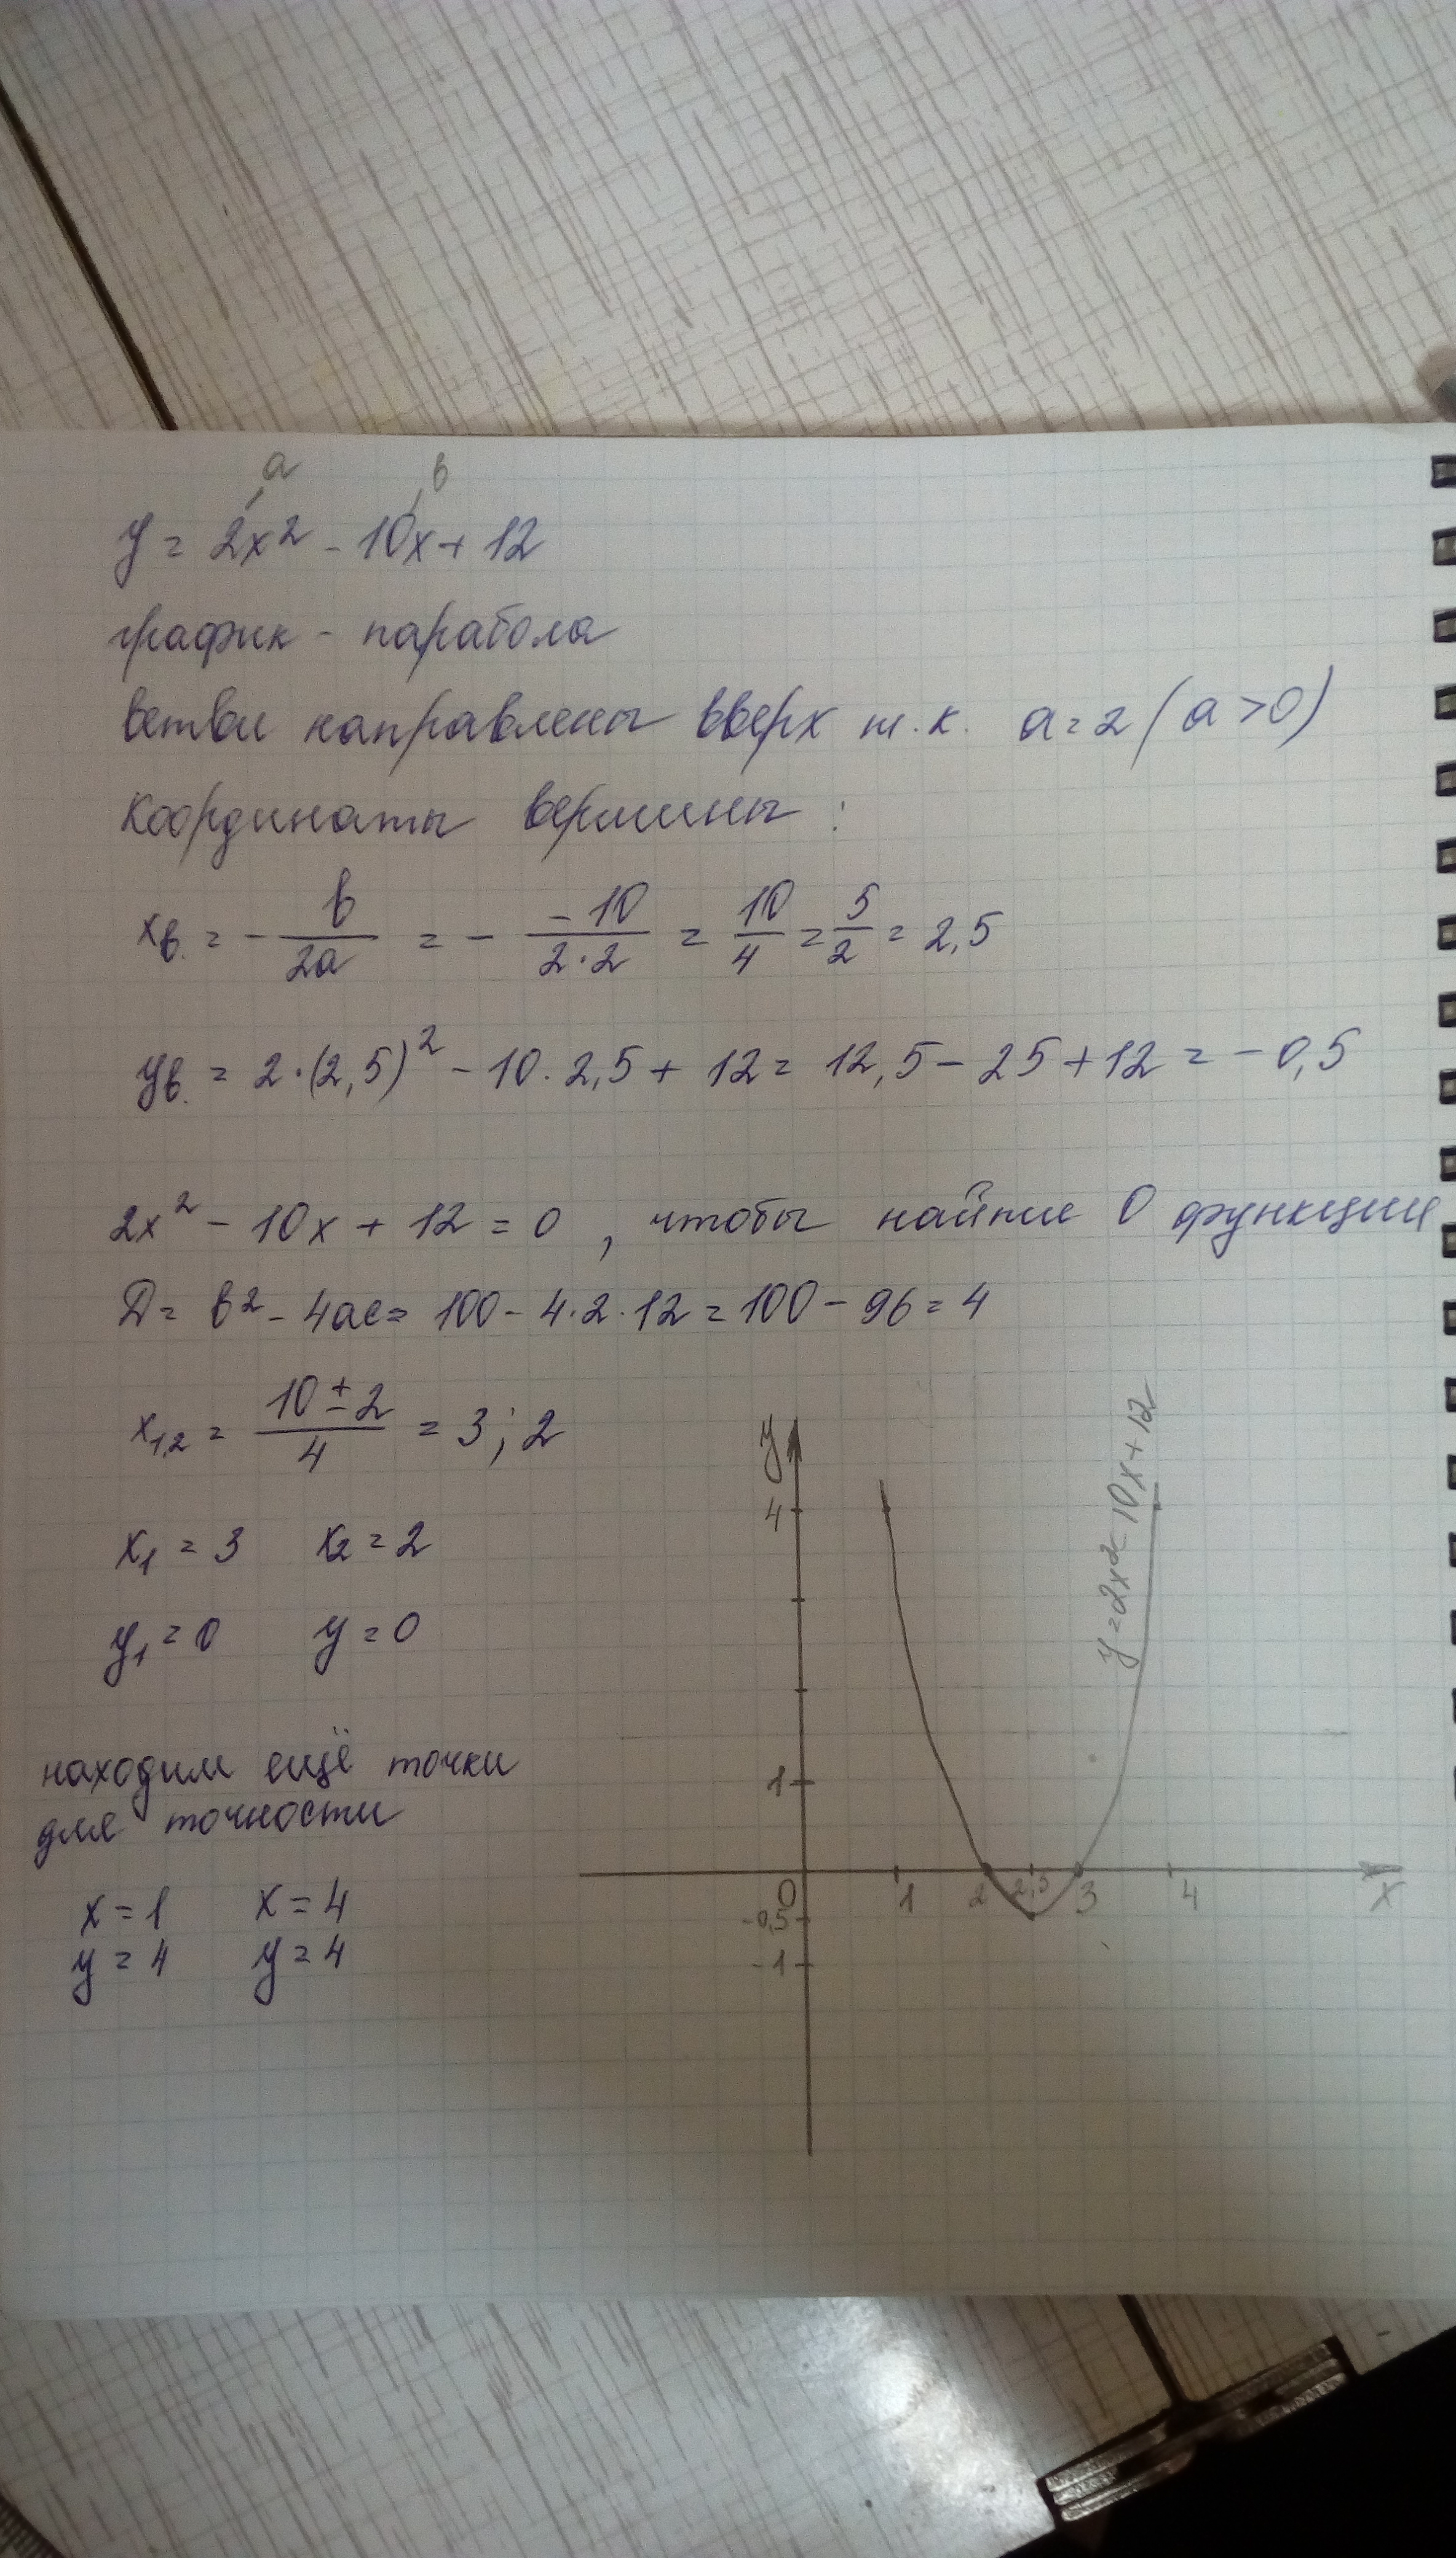 a b
y = 2x² - 10x + 12
график - парабола
ветви направлены вверх т.к. a = 2 (a > 0)
Координаты вершины :
xв. = - b/2a = - -10/2·2 = 10/4 = 5/2 = 2,5
yв. = 2·(2,5)² - 10·2,5 + 12 = 12,5 - 25 + 12 = -0,5
2x² - 10x + 12 = 0 , чтобы найти 0 функции
D = b² - 4ac = 100 - 4·2·12 = 100 - 96 = 4
x1,2 = 10 ± 2/4 = 3 ; 2
x1 = 3 x2 = 2
y1 = 0 y = 0
находим ещё точки
для точности
x = 1 x = 4
y = 4 y = 4
y
4
1
0 1 2 2,5 3 4 x
-0,5
-1
y = 2x² - 10x + 12